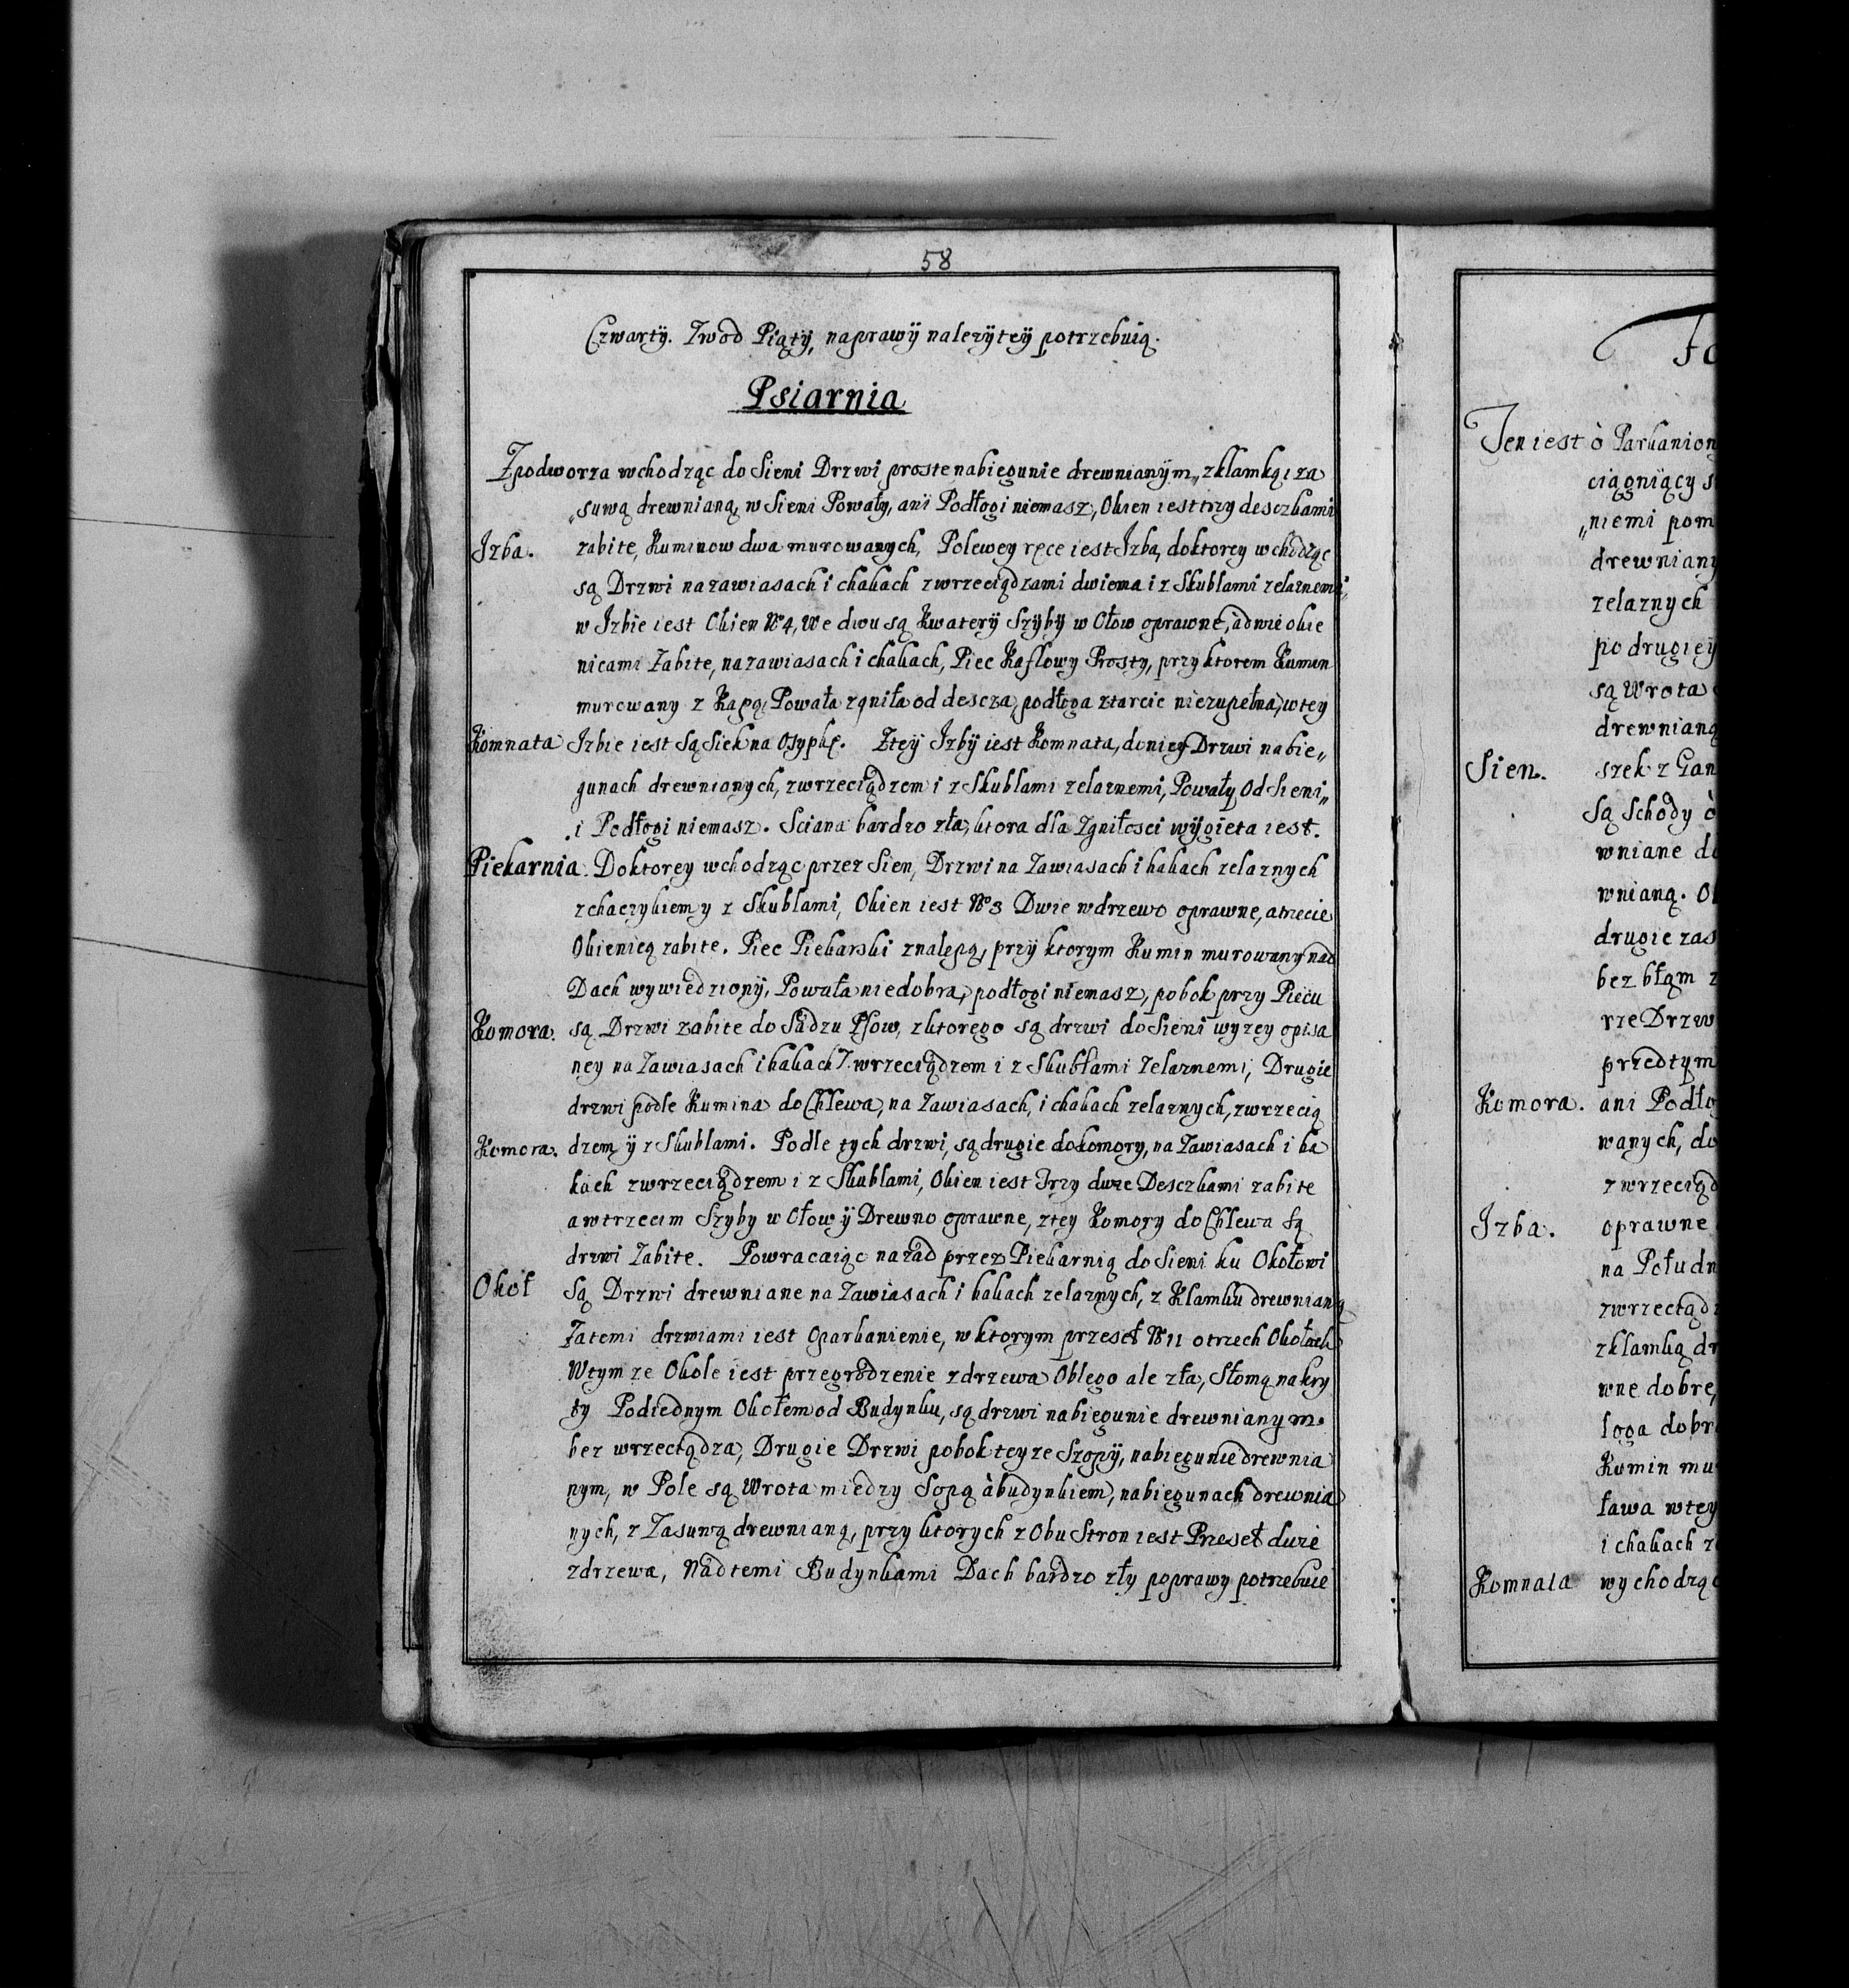 58
Czwartÿ. Zwod Piątÿ, naprawÿ nalezÿteÿ potrzebuią.
Psiarnia
Zpodworza wchodząc do Sieni Drzwi proste nabiegunie drewnianÿm„ zklamką i za
„suwą drewnianą, w Sieni Powały, ani Podłogi niemasz, Okien iest trzy desczkami
Izba. zabite, Kuminow dwa murowanych, Polewey ręce iest Izba, doktorey wchodząc
są Drzwi nazawiasach i chakach zwrzeciądzami dwiema i z Skublami zelaznemi,
w Izbie iest Okien No 4, We dwu są Kwaterÿ Szÿbÿ w Ołow oprawne, adwie okie
nicami Zabite, nazawiasach i chakach, Piec Kaflowy Prosty, przy ktorem Kumin
murowany z Kapą, Powała zgniła od descza, podłoga ztarcic niezupełna, wtey
Komnata Izbie iest Sąsiek na Osypkę. Zteÿ Izbÿ iest Komnata, do niey Drzwi nabie„
gunach drewnianych, zwrzeciądzem i z Skublami zelaznemi, Powały Od Sieni„
i Podłogi niemasz. Sciana bardzo zła, ktora dla Zgniłosci wÿgięta iest.
Piekarnia. Doktorey wchodząc przez Sien, Drzwi na Zawiasach i hakach zelaznych
zchaczykiem y z Skublami, Okien iest No 3 Dwie wdrzewo oprawne, atrzecie
Okienicą zabite. Piec Piekarski znalepą, przÿ ktorym Kumin murowany nad
Dach wywiedzionÿ, Powała niedobra, podłogi niemasz, pobok przy Piecu
Komora. są Drzwi zabite do Sadzu Psow, zktorego są drzwi do Sieni wyzey opisa
ney na Zawiasach i hakach Z wrzeciądzem i z Skubłami Zelaznemi, Drugie
drzwi podle Kumina do Chlewa, na Zawiasach, i chakach zelaznych, zwrzecią
Komora. dzem ÿ z Skublami. Podle tych drzwi, są drugie dokomory, na Zawiasach i ha
kach zwrzeciądzem i z Skublami, Okien iest Trzy dwie Desczkami zabite
awtrzecim Szyby w Ołow ÿ Drewno oprawne, ztey Komory do Chlewa są
drzwi Zabite. Powracaiąc nazad przez Piekarnią do Sieni ku Okołowi
Okoł Są Drzwi drewniane na Zawiasach i hakach zelaznych, z Klamku drewnianą
Zatemi drzwiami iest Oparkanienie, w ktorym przeseł No 11 otrzech Okołach
Wtym ze Okole iest przegrodzenie zdrzewa Oblego ale zła, Słomą nakry
ty Podiednym Okołem od Budynku, są drzwi nabiegunie drewnianym.
bez wrzeciądza, Drugie Drzwi pobok teyze Szopÿ, nabiegunie drewnia
nym, w Pole są Wrota między Sopą à budynkiem, nabiegunach drewnia
nych, z Zasuwą drewnianą, przy ktorych z Obu Stron iest Przeseł dwie
zdrzewa, Nad temi Budynkami Dach bardzo zły poprawy potrzebuie
Ten iest ò Parkanion
ciągnïący s
„niemi pom
drewniany
zelaznych
po drugiey
są Wrota
drewnianą
Sien. szek z Gan
Są Schody ò
wniane do
wnianą. O
drugie zas
bez błąm z
rze Drzw
przedtym
Komora. ani Podło
wanych, do
zwrzeciąd
Izba. oprawne
na Połudn
zwrzeciądz
zklamką dr
wne dobre,
loga dobr
Kumin mu
ława wtey
i chakach z
Komnata wychodząc